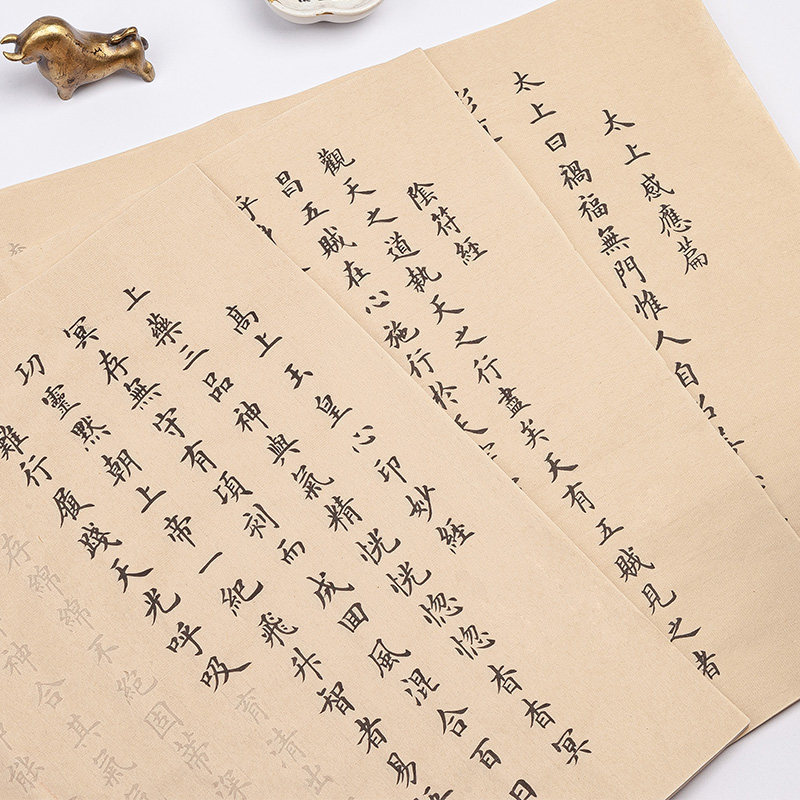 太上感應篇
太上曰禍福無門惟人自召
陰符經
觀天之道執天之行盡矣天有五賊見之者
昌五賊在心施行於天
乎
高上玉皇心印妙經
上藥三品神與氣精恍恍惚惚杳杳冥
冥存無守有頃刻而成回風混合百日
功靈默朝上帝一紀飛升智者易
難行履踐天光呼吸育清出
存綿綿不絕固蒂深
神合其氣
能
太